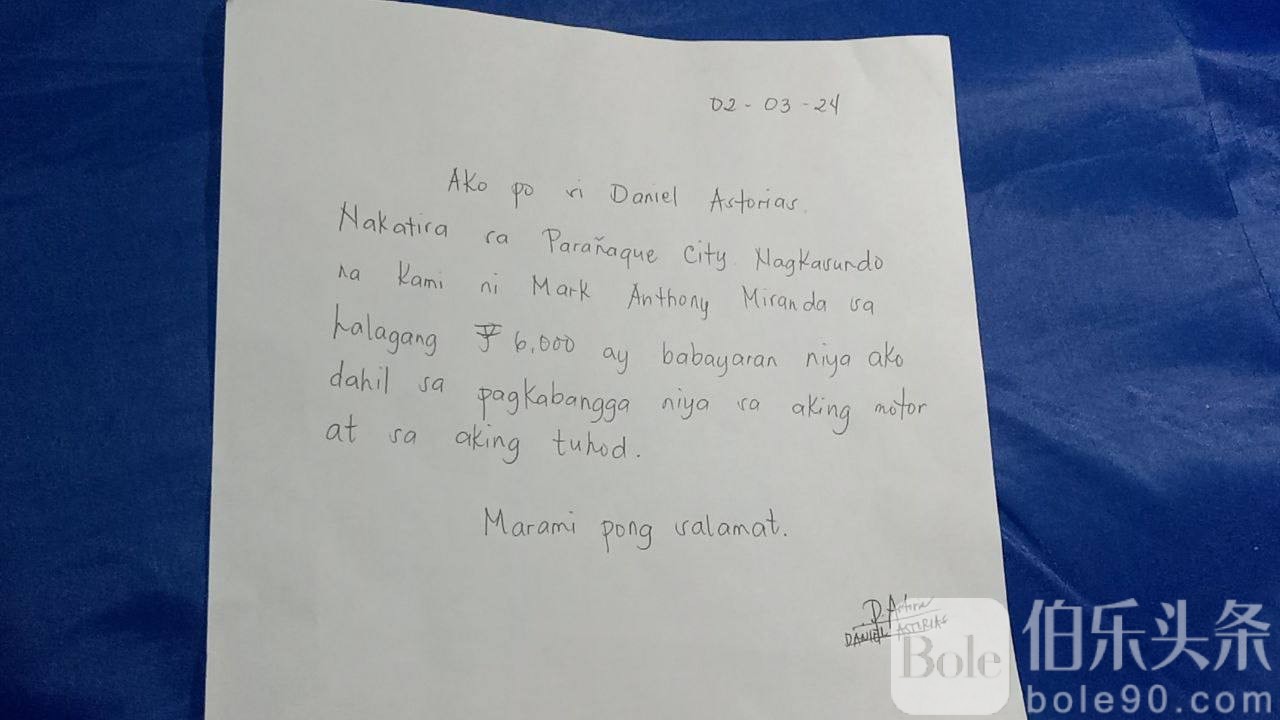 02-03-24
Ako po si Daniel Astorias.
Nakatira sa Parañaque City. Nagkasundo
na kami ni Mark Anthony Miranda sa
halagang ₱ 6,000 ay babayaran niya ako
dahil sa pagkabangga niya sa aking motor
at sa aking tuhod.
Marami pong salamat.
DANIEL ASTORIAS
Bole
伯乐头条
bole90.com